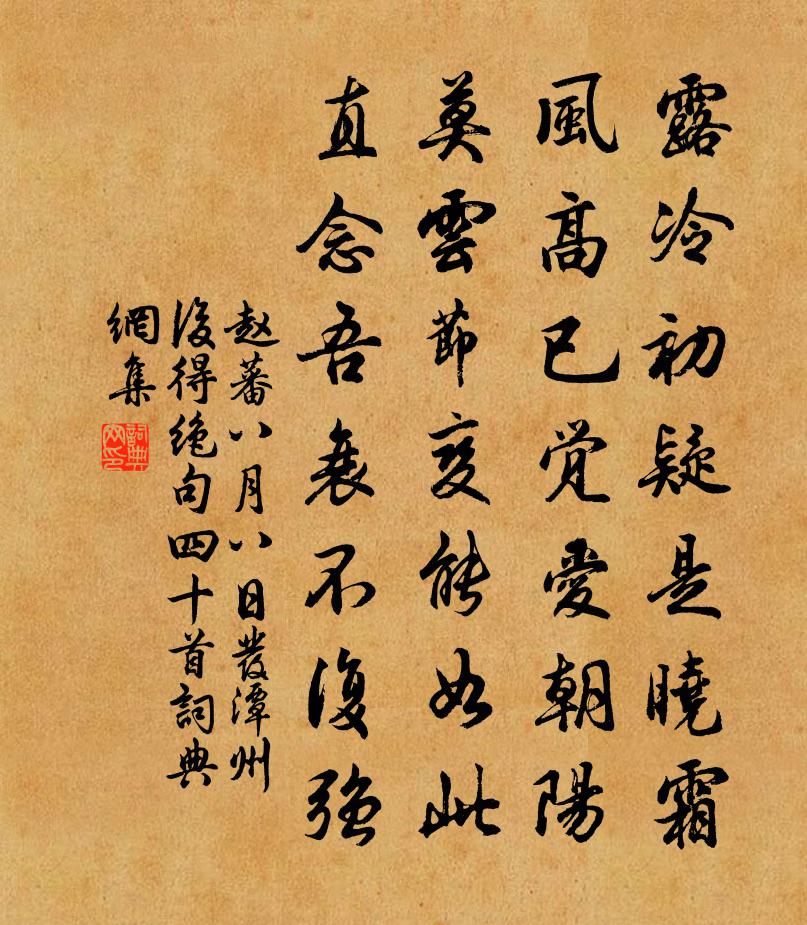 露冷初疑是曉霜
風高已覺愛朝陽
莫雲節變能如此
直念吾衰不復強
赵蕃八月八日發潭州
後得絶句四十首詞典
網集
詞典網印